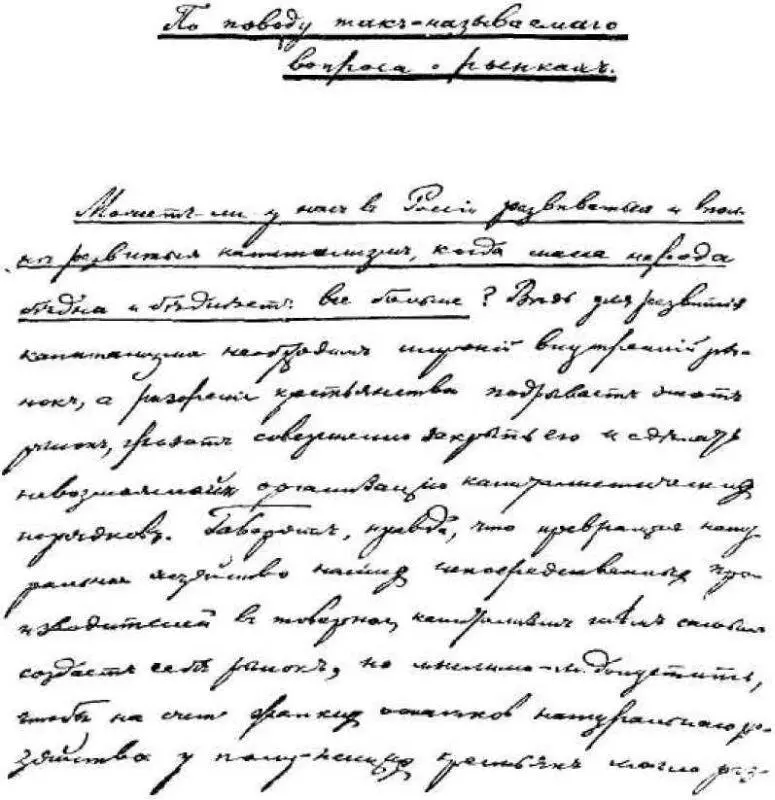 По поводу такъ-называемаго
вопроса о рынкахъ.
Можетъ-ли у насъ въ Россіи развиваться и впол-
нѣ развиться капитализмъ, когда масса народа
бѣдна и бѣднѣетъ все больше? Вѣдь для развитія
капитализма необходимъ широкій внутренній ры-
нокъ, а разореніе крестьянства подрываетъ этотъ
рынокъ, грозитъ совершенно закрыть его и сдѣлать
невозможной организацію капиталистическихъ
порядковъ. Говорятъ, правда, что превращая нату-
ральное хозяйство нашихъ непосредственныхъ про-
изводителей въ товарное, капитализмъ тѣмъ самымъ
создаетъ себѣ рынокъ, но мыслимо-ли допустить,
чтобы на счет жалкихъ остатковъ натуральнаго хо-
зяйства у полу-нищихъ крестьянъ могло раз-